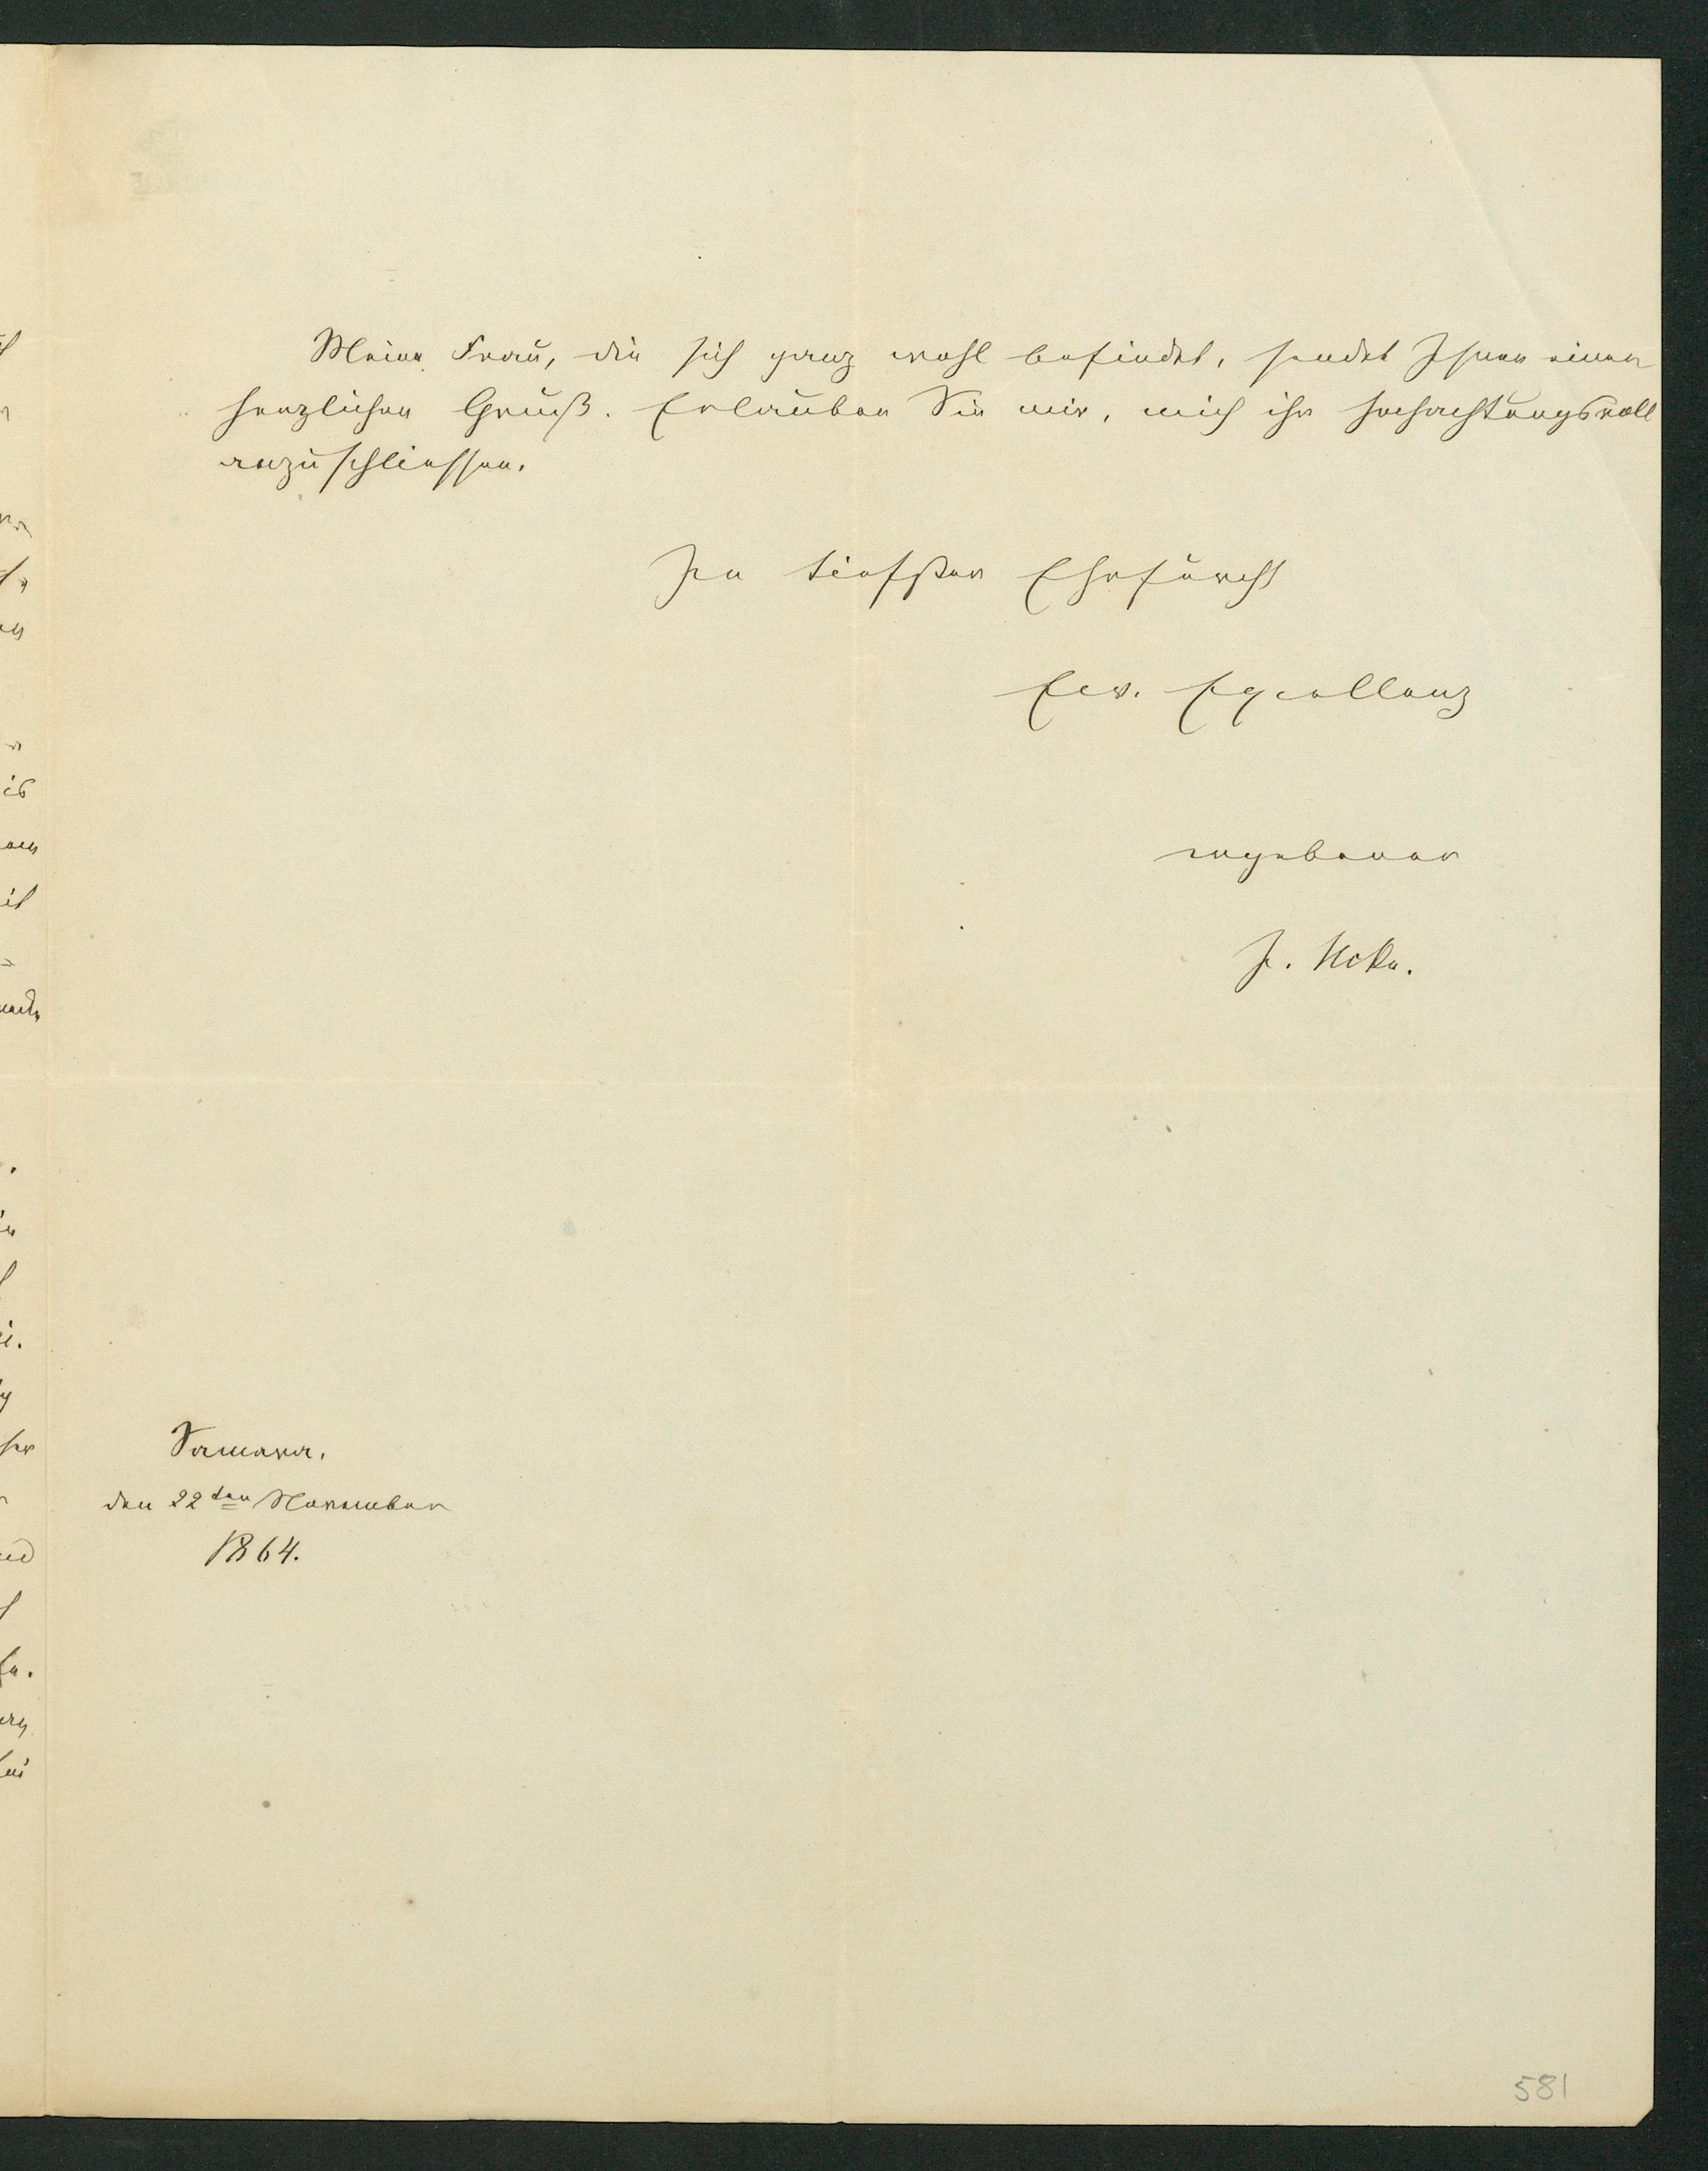 Meine Frau, die sich ganz wohl befindet, sendet Ihnen einen
herzlichen Gruß. Erlauben Sie mir, mich ihr hochachtungsvoll
anzuschliessen.
In tiefster Ehrfurcht
Ew. Excellenz
ergebener
J. Ucke.
Samara.
den 22ten November
1864.
581